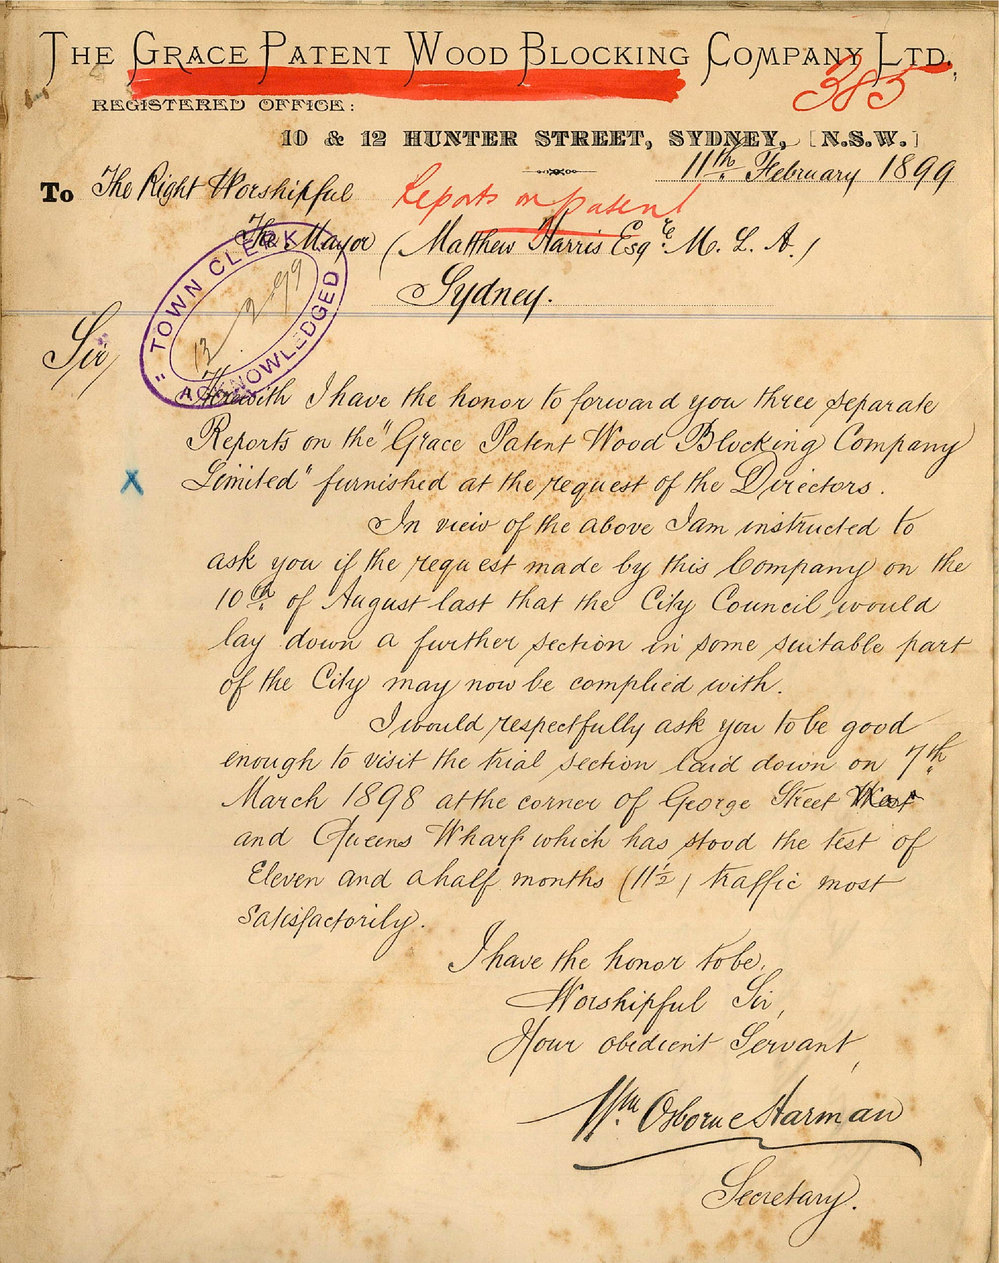 THE GRACE PATENT WOOD BLOCKING COMPANY LTD.,
385
REGISTERED OFFICE:
10 & 12 HUNTER STREET, SYDNEY, [N.S.W.]
11th February 1899
To The Right Worshipful
Reports on patent
The Mayor (Matthew Harris Esqre. M. L. A.)
Sydney.
TOWN CLERK
13 2 99
ACKNOWLEDGED
Sir,
Herewith I have the honor to forward you three separate
Reports on the "Grace Patent Wood Blocking Company
X
Limited" furnished at the request of the Directors.
In view of the above I am instructed to
ask you if the request made by this Company on the
10th. of August last that the City Council, would
lay down a further section in some suitable part
of the City may now be complied with.
I would respectfully ask you to be good
enough to visit the trial section laid down on 7th.
March 1898 at the corner of George Street West
and Queens Wharf which has stood the test of
Eleven and a half months (11½) traffic most
satisfactorily.
I have the honor to be,
Worshipful Sir,
Your obedient Servant,
Wm. Osborne Harman
Secretary.